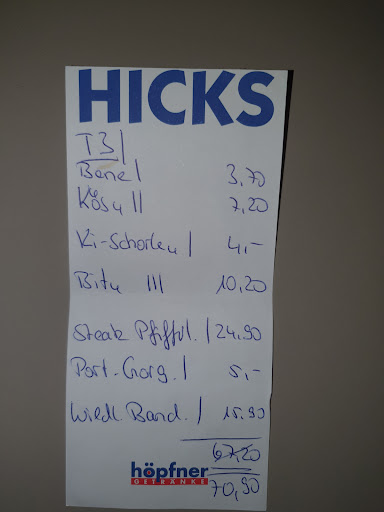 HICKS
T3|
Bene | 3,70
Kösy || 7,20
Ki-Schorlen | 4,-
Bitu ||| 10,20
Steak Pfifferl. | 24,90
Port. Gorg. | 5,-
Wiedl. Band. | 15,90
67,20
höpfner
GETRÄNKE
70,90